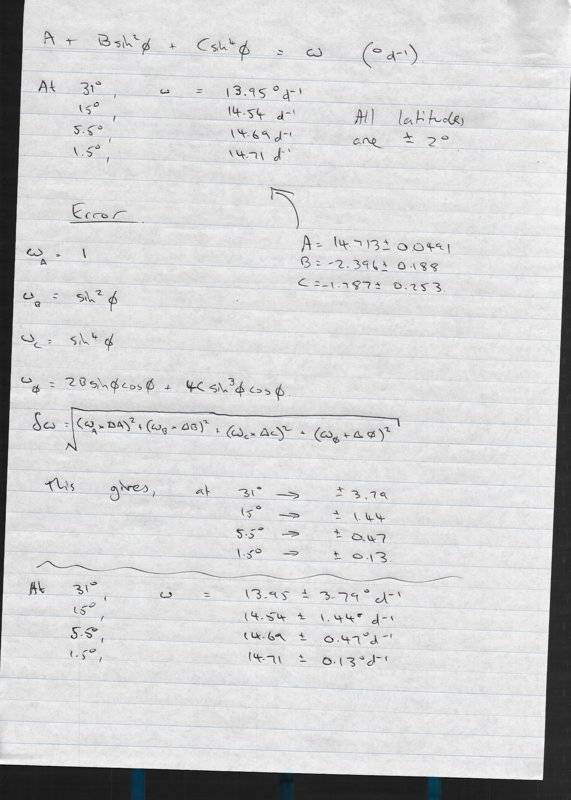 A + B sin²φ + C sin⁴φ = ω (° d⁻¹)
At 31°, ω = 13.95° d⁻¹
15°, 14.54 d⁻¹
5.5°, 14.69 d⁻¹
1.5°, 14.71 d⁻¹
All latitudes
are ± 2°
Error
A = 14.713 ± 0.0491
B = -2.396 ± 0.188
C = -1.787 ± 0.253
ω_A = 1
ω_B = sin²φ
ω_C = sin⁴φ
ω_φ = 2B sinφ cosφ + 4C sin³φ cosφ.
δω = √((ω_A × ΔA)² + (ω_B × ΔB)² + (ω_C × ΔC)² + (ω_φ + Δφ)²)
This gives, at 31° → ± 3.79
15° → ± 1.44
5.5° → ± 0.47
1.5° → ± 0.13
At 31°, ω = 13.95 ± 3.79° d⁻¹
15°, 14.54 ± 1.44° d⁻¹
5.5°, 14.69 ± 0.47° d⁻¹
1.5°, 14.71 ± 0.13° d⁻¹